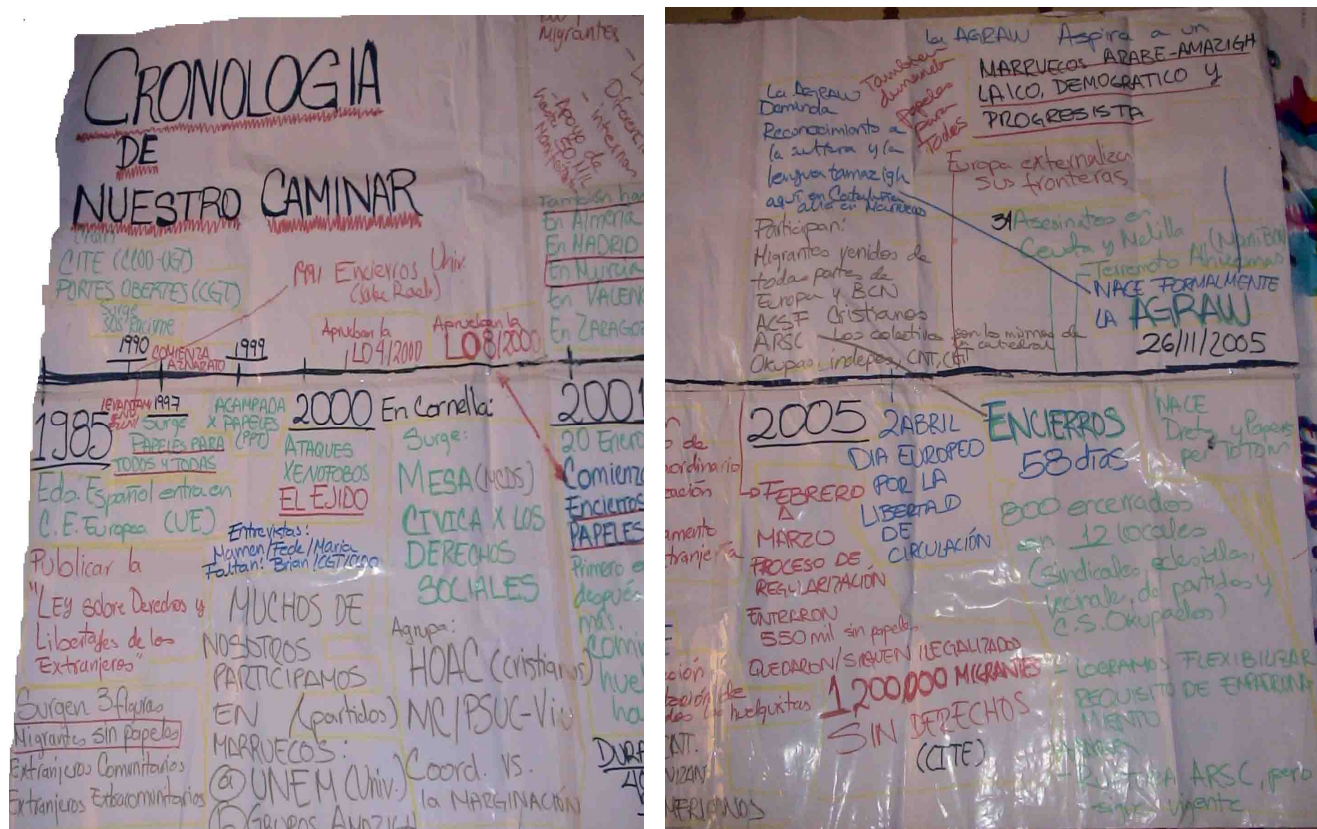 CRONOLOGIA
DE
NUESTRO CAMINAR
CITE (CCOO-UGT)
PORTES OBERTES (CGT)
Surge
SOS Racime
1990
COMIENZA
AZNARATO
1999
1991 Encierros Univ.
Aprueban la
LO 4/2000
Aprueban la
LO 8/2000
Migrantes
Apoyo de
internas
También
En Almeria
En MADRID
En Murcia
En VALEN
En ZARAGO
1985
Edo. Español entra en
C. E. Europea (UE)
Publicar la
"LEY sobre Derechos y
Libertades de los
Extranjeros"
Surgen 3 figuras
Migrantes sin papeles
Extranjeros Comunitarios
Extranjeros Extracomunitarios
1997
Surge
PAPELES PARA
TODOS Y TODAS
ACAMPADA
X PAPELES
(PPT)
2000
ATAQUES
XENOFOBOS
EL EJIDO
Entrevistas:
Mamen/Fede/Maria
Faltan: Brian/CGT/
MUCHOS DE
NOSOTROS
PARTICIPAMOS
EN (partidos)
MARRUECOS:
@ UNEM (Univ.)
GRUPOS AMAZIGH
En Cornella:
Surge:
MESA
CIVICA X LOS
DERECHOS
SOCIALES
Agrupa:
HOAC (cristianos)
MC/PSUC-Viu
Coord. vs.
la MARGINACIÓN
2001
20 Enero
Comienz
Encierros
PAPELES
Primero
después
más.
Comi
hue
ha
DURA
la AGRAW Aspira a un
MARRUECOS ARABE-AMAZIGH
LAICO, DEMOCRATICO y
PROGRESISTA
La AGRAW
Demanda
Reconocimiento a
la cultura y la
lengua tamazigh
aquí en Catalunya
allá en Marruecos
También
demanda
Papeles
para
Todos
Europa externaliza
sus fronteras
Asesinatos en
Ceuta y Melilla
Terremoto Alhucemas
NACE FORMALMENTE
LA AGRAW
26/11/2005
Participan:
Migrantes venidos de
todas partes de
Europa y BCN
ACSF Cristianos
ARSC Los colectivos son los mismos de
la catedral
Okupas, indepes, CNT, CGT
2005
FEBRERO
A
MARZO
PROCESO DE
REGULARIZACIÓN
ENTRARON
550 mil sin papeles
QUEDARON/SIGUEN ILEGALIZADOS
1,200,000 MIGRANTES
SIN DERECHOS
(CITE)
2 ABRIL
DIA EUROPEO
POR LA
LIBERTAD
DE
CIRCULACIÓN
ENCIERROS
58 días
800 encerrados
en 12 locales
(sindicales, eclesiales,
vecinales, de partidos y
C.S. Okupados)
NACE
Drets y Papers
per TOTOM
- LOGRAMOS FLEXIBILIZAR
REQUISITO DE EMPADRONA
MIENTO
ARSC, pero
sigue vigente
de
ordinario
ación
amento
tranjería
ción
huelguistas
CNT.
NIZAN
MERICANOS